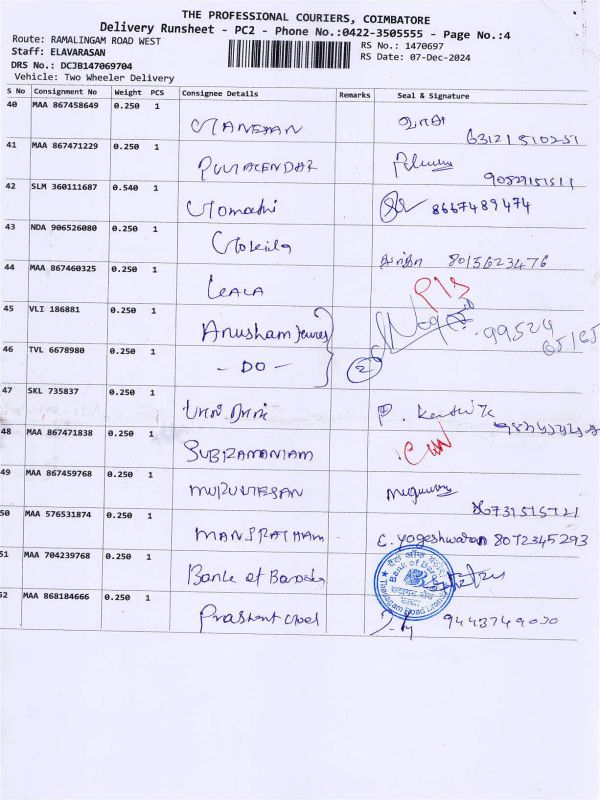 THE PROFESSIONAL COURIERS, COIMBATORE
Delivery Runsheet - PC2 - Phone No.:0422-3505555 - Page No.:4
Route: RAMALINGAM ROAD WEST
RS No.: 1470697
Staff: ELAVARASAN
RS Date: 07-Dec-2024
DRS No.: DCJB147069704
Vehicle: Two Wheeler Delivery
S No Consignment No Weight PCS Consignee Details Remarks Seal & Signature
40 MAA 867458649 0.250 1
63121510251
41 MAA 867471229 0.250 1
42 SLM 360111687 0.540 1 Gomathi 8667489474
43 NDA 906526080 0.250 1 Gokila 8015623476
44 MAA 867460325 0.250 1 LEALA
45 VLI 186881 0.250 1 Anusham
46 TVL 6678980 0.250 1 - DO - 2
47 SKL 735837 0.250 1
48 MAA 867471838 0.250 1 SUBRAMANIAM
49 MAA 867459768 0.250 1 MURUGESAN
50 MAA 576531874 0.250 1 C. Yogeshwaran 8072345293
51 MAA 704239768 0.250 1 Bank of Baroda
52 MAA 868184666 0.250 1 Prashant 9443749030